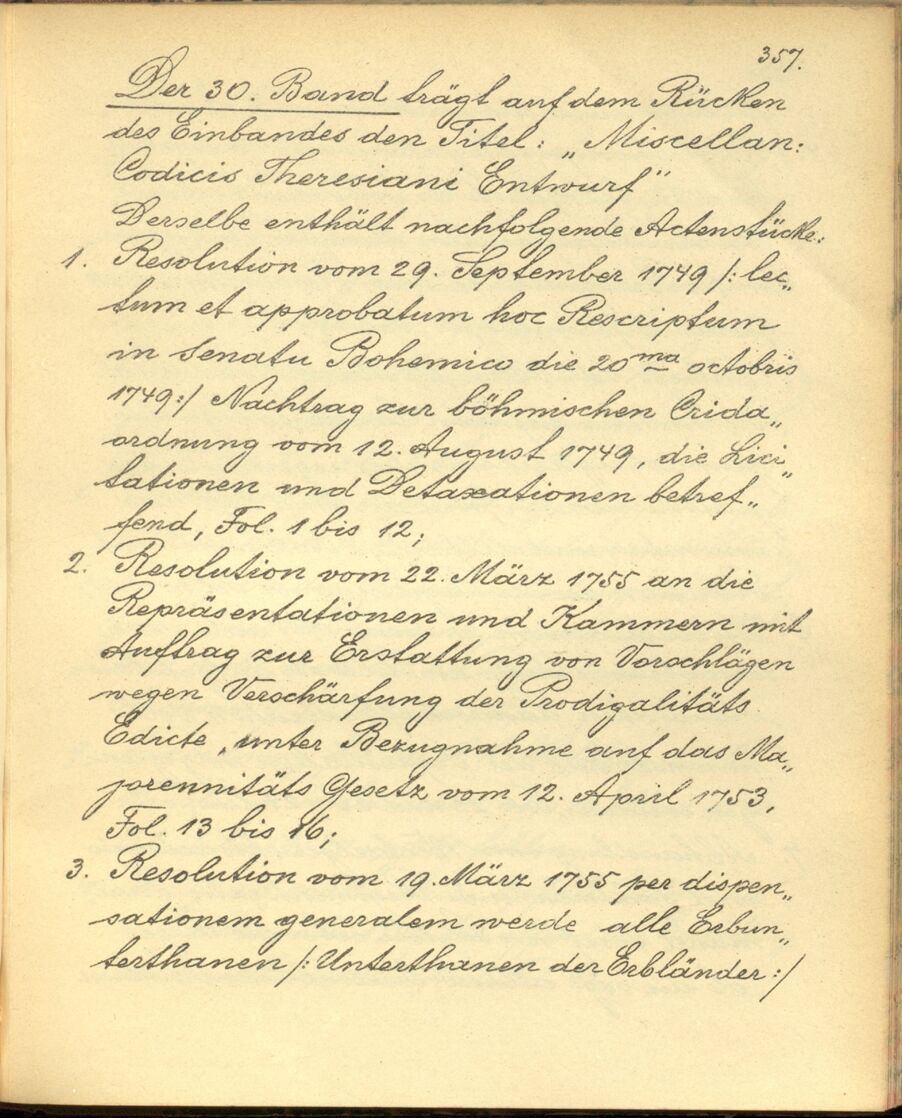 357.
Der 30. Band trägt auf dem Rücken
des Einbandes den Titel: „Miscellan:
Codicis Theresiani Entwurf"
Derselbe enthält nachfolgende Actenstücke:
1. Resolution vom 29. September 1749 /: lec„
tum et approbatum hoc Rescriptum
in Senatu Bohemico die 20ma octobris
1749:/ Nachtrag zur böhmischen Crida„
ordnung vom 12. August 1749, die Lici„
tationen und Detaxationen betref„
fend, Fol. 1 bis 12;
2. Resolution vom 22. März 1755 an die
Repräsentationen und Kammern mit
Auftrag zur Erstattung von Vorschlägen
wegen Verschärfung der Prodigalitäts
Edicte, unter Bezugnahme auf das Ma„
jorennitäts Gesetz vom 12. April 1753,
Fol. 13 bis 16;
3. Resolution vom 19. März 1755 per dispen„
sationem generalem werde alle Erbun„
terthanen /: Unterthanen der Erbländer :/